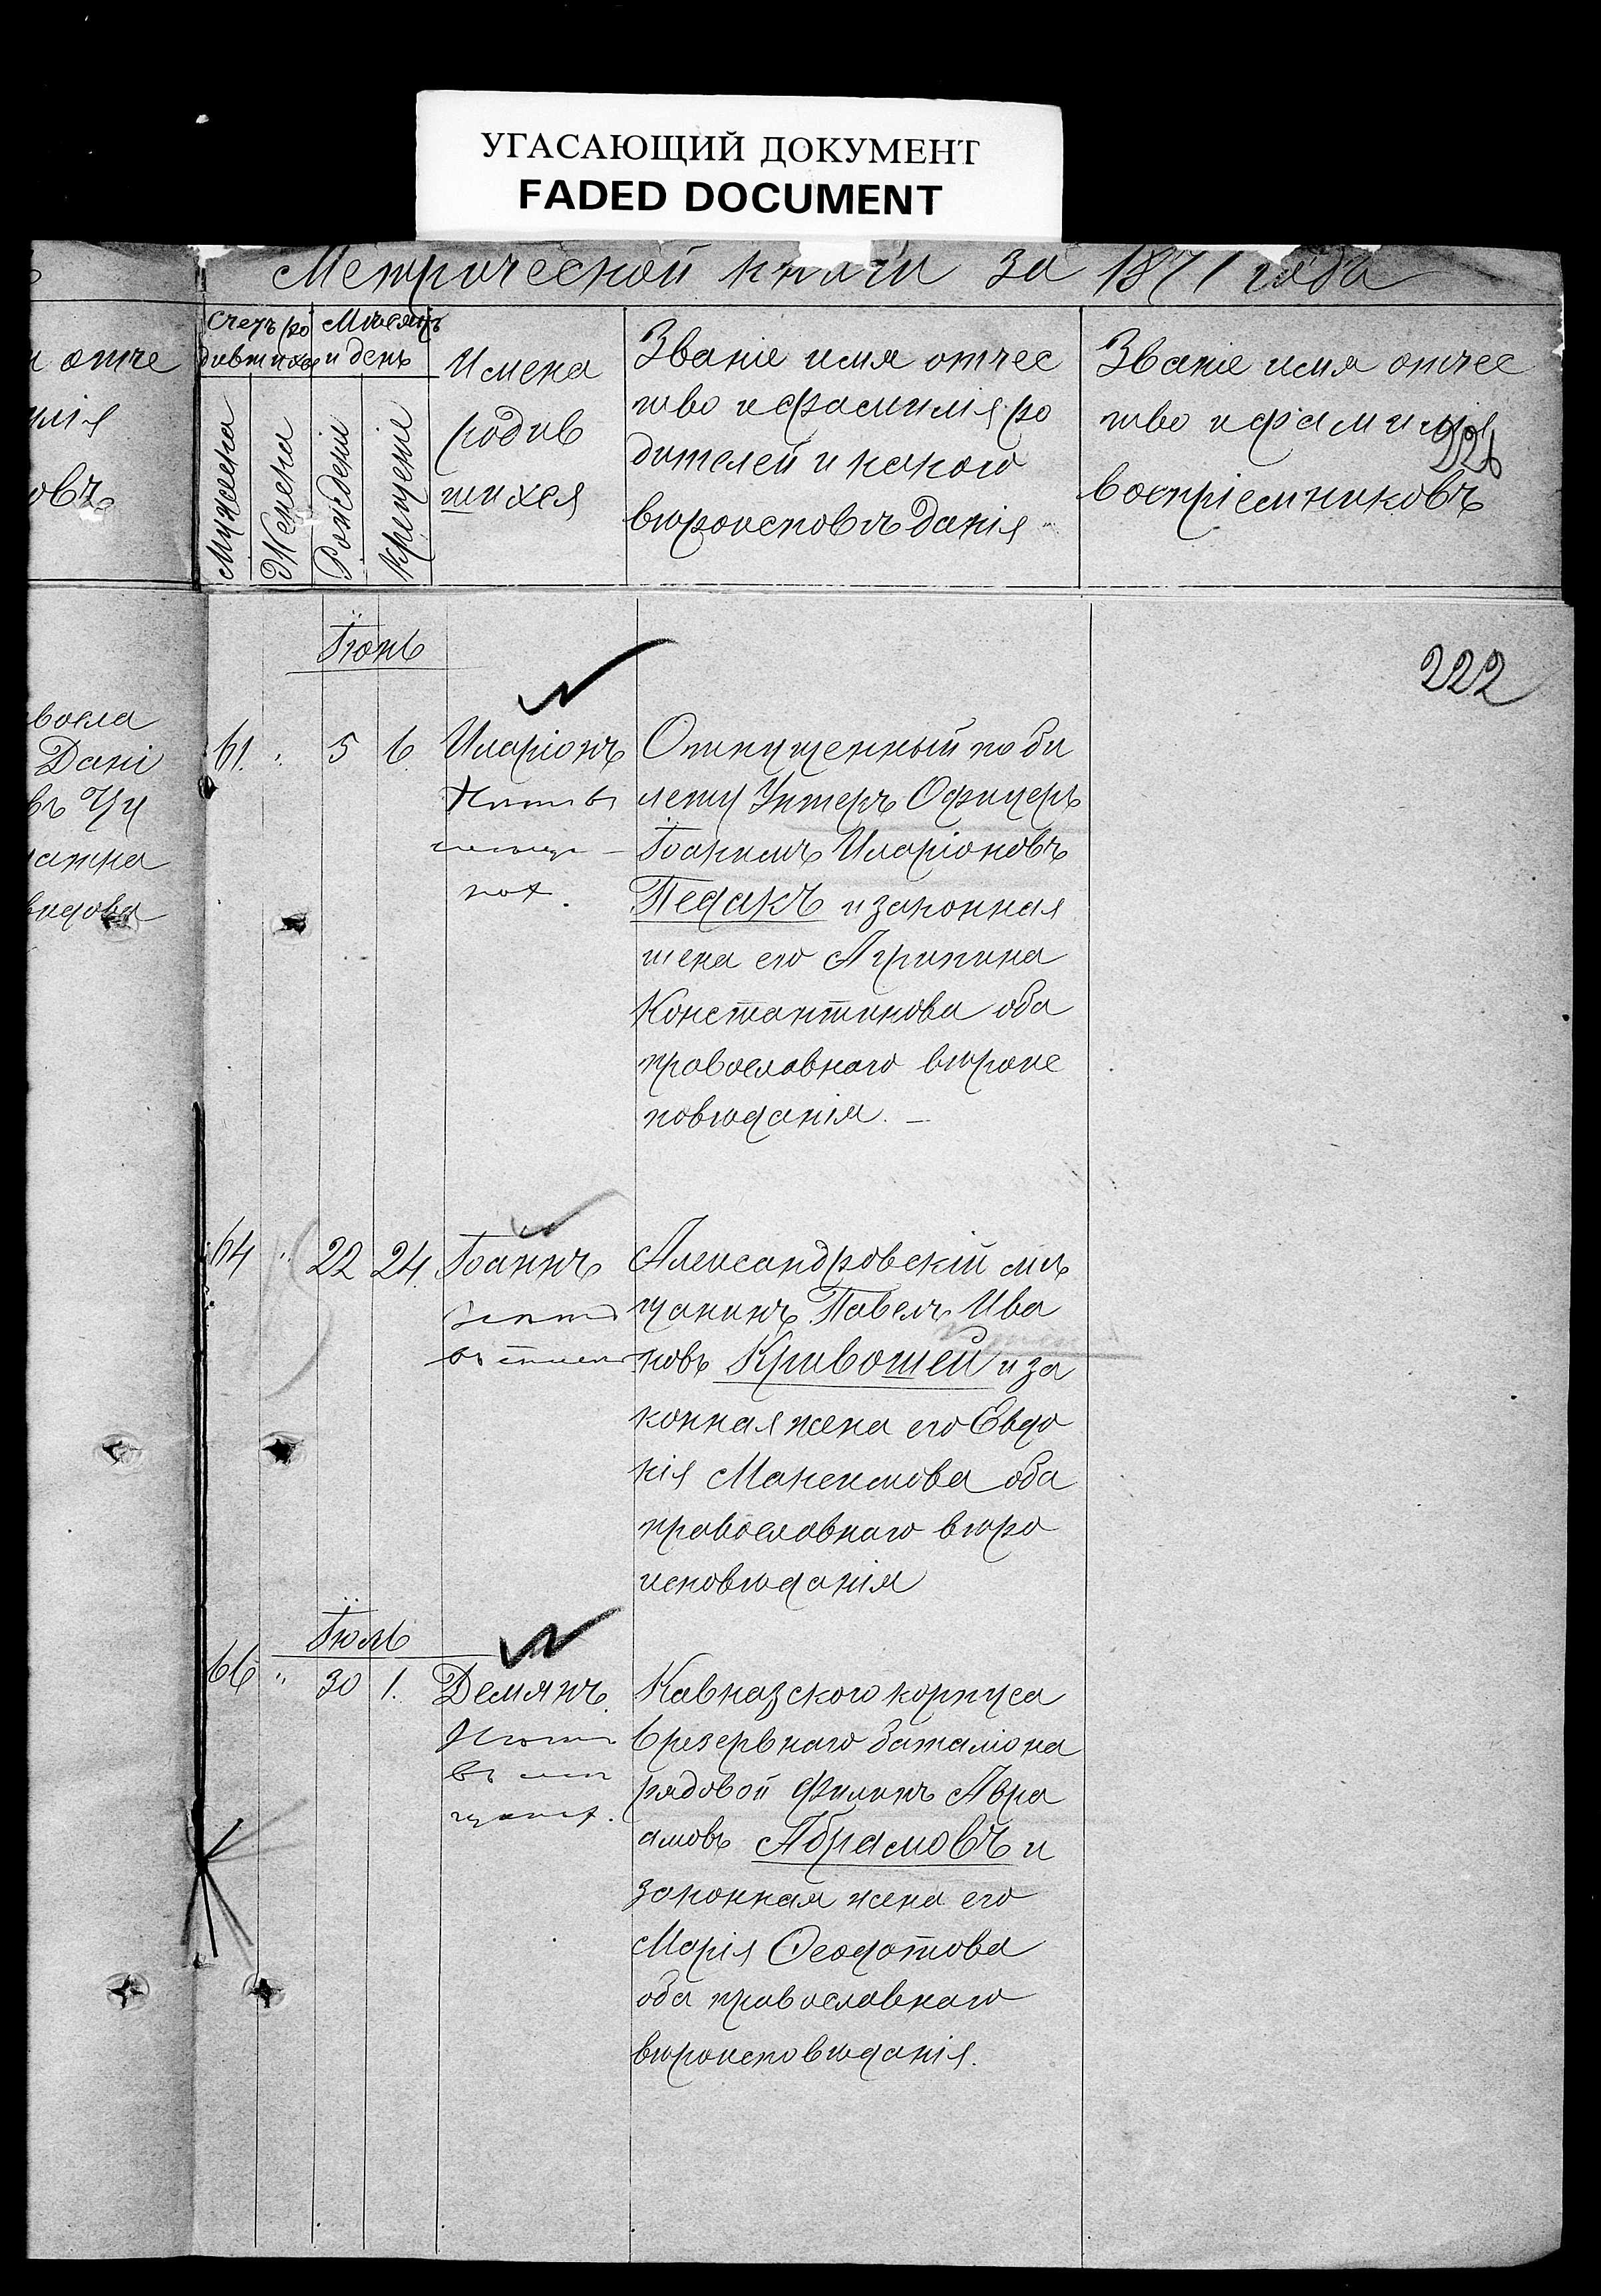 УГАСАЮЩИЙ ДОКУМЕНТ
FADED DOCUMENT
Метрической книги за 1871 года
отче
овъ
восла
Дані
Счетъ ро
дившихся
Мужеска
Женска
Мѣсяцъ
и день
Рожденіе
Крещеніе
Имена
родив
шихся
Званіе имя отчес
тво и фамилія ро
дителей и какого
вѣроисповѣданія
Званіе имя отчес
тво и фамилія
воспріемниковъ
222
Іюнь
61. " 5 6 Иларіонъ
Отпущенный по би
лету Унтеръ Офицеръ
Іоакимъ Иларіоновъ
Педакъ и законная
жена его Агрипина
Константинова оба
православнаго вѣроис
повѣданія. –
64 " 22 24. Іоаннъ
Александровскій мѣ
щанинъ Павелъ Ива
новъ Кривошей и за
конная жена его Евдо
кія Максимова оба
православнаго вѣро
исповѣданія
Іюль
66 " 30 1. Демянъ.
Кавказского корпуса
резервнаго баталіона
рядовой Филипъ Авра
амовъ Абрамовъ и
законная жена его
Марія Феодотова
оба православнаго
вѣроисповѣданія.